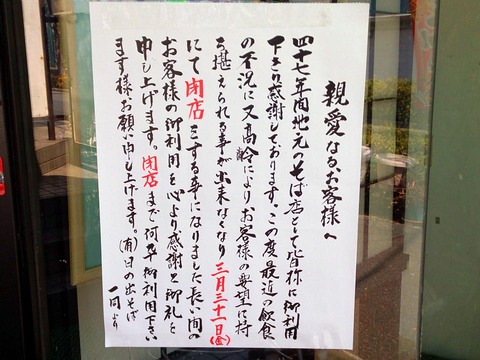 親愛なるお客様へ
四十七年間地元のそば店として皆称に御利用
下さり感謝しております。この度最近の飲食
の不況に又高齢によりお客様の要望に持
ち堪えられる事が出来なくなり三月三十一日(金)
にて閉店をする事になりました長い間の
お客様の御利用を心より感謝と御礼を
申し上げます。閉店まで何卒御利用下さい
ます様お願い申し上げます。(有)日の出そば
一同より